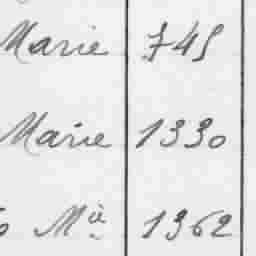 Marie 745
Marie 1330
Mie 1362